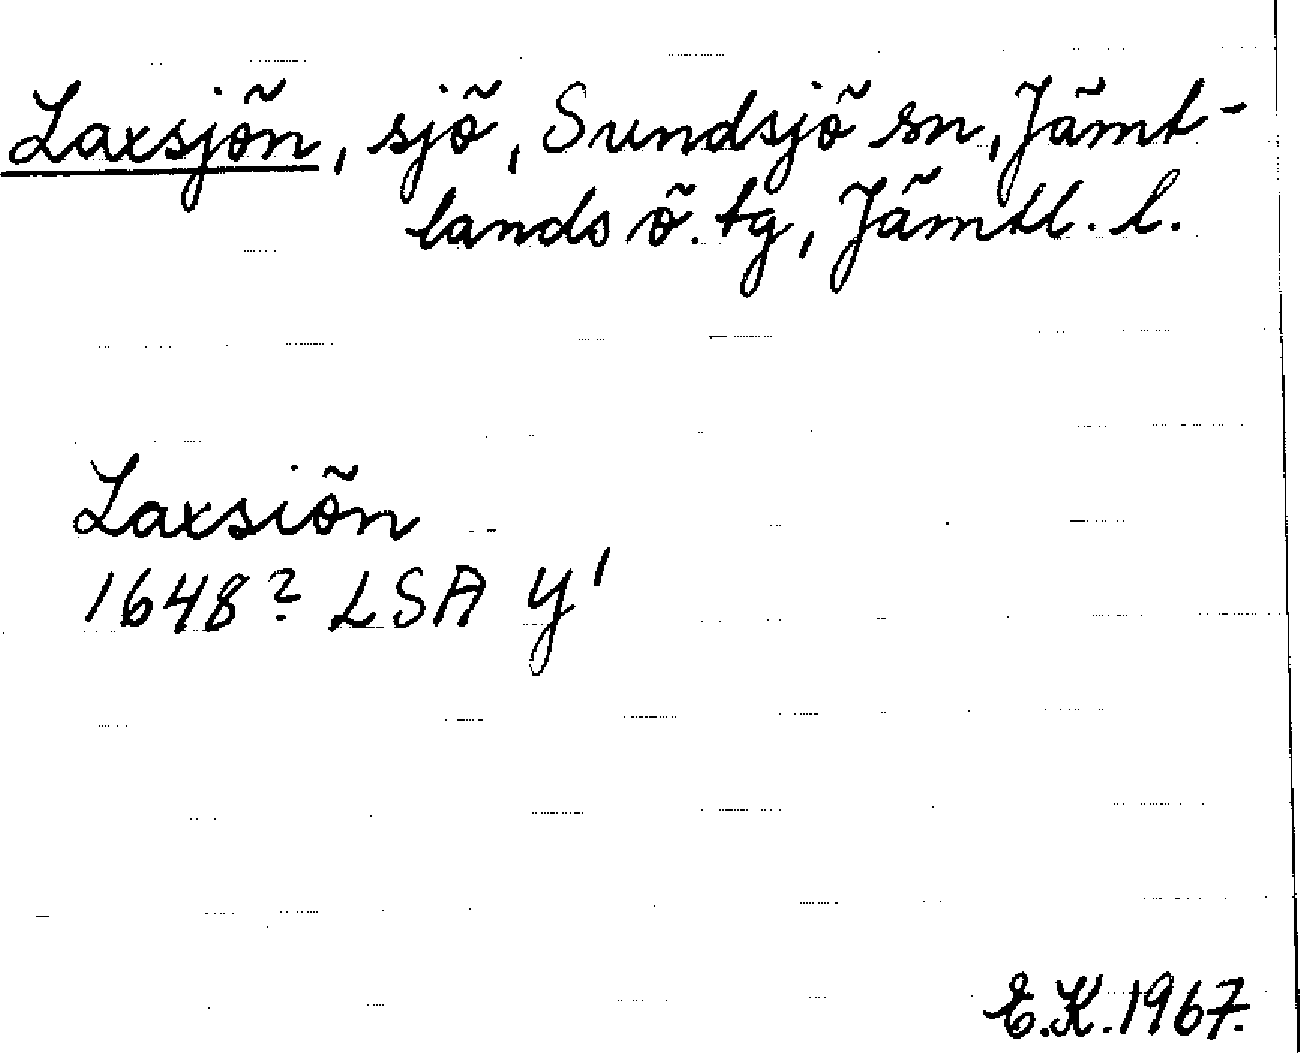 Laxsjön, sjö, Sundsjö sn, Jämt-
lands ö. tg, Jämtl. l.
Laxsiön
1648? LSA Y1
E.K. 1967.